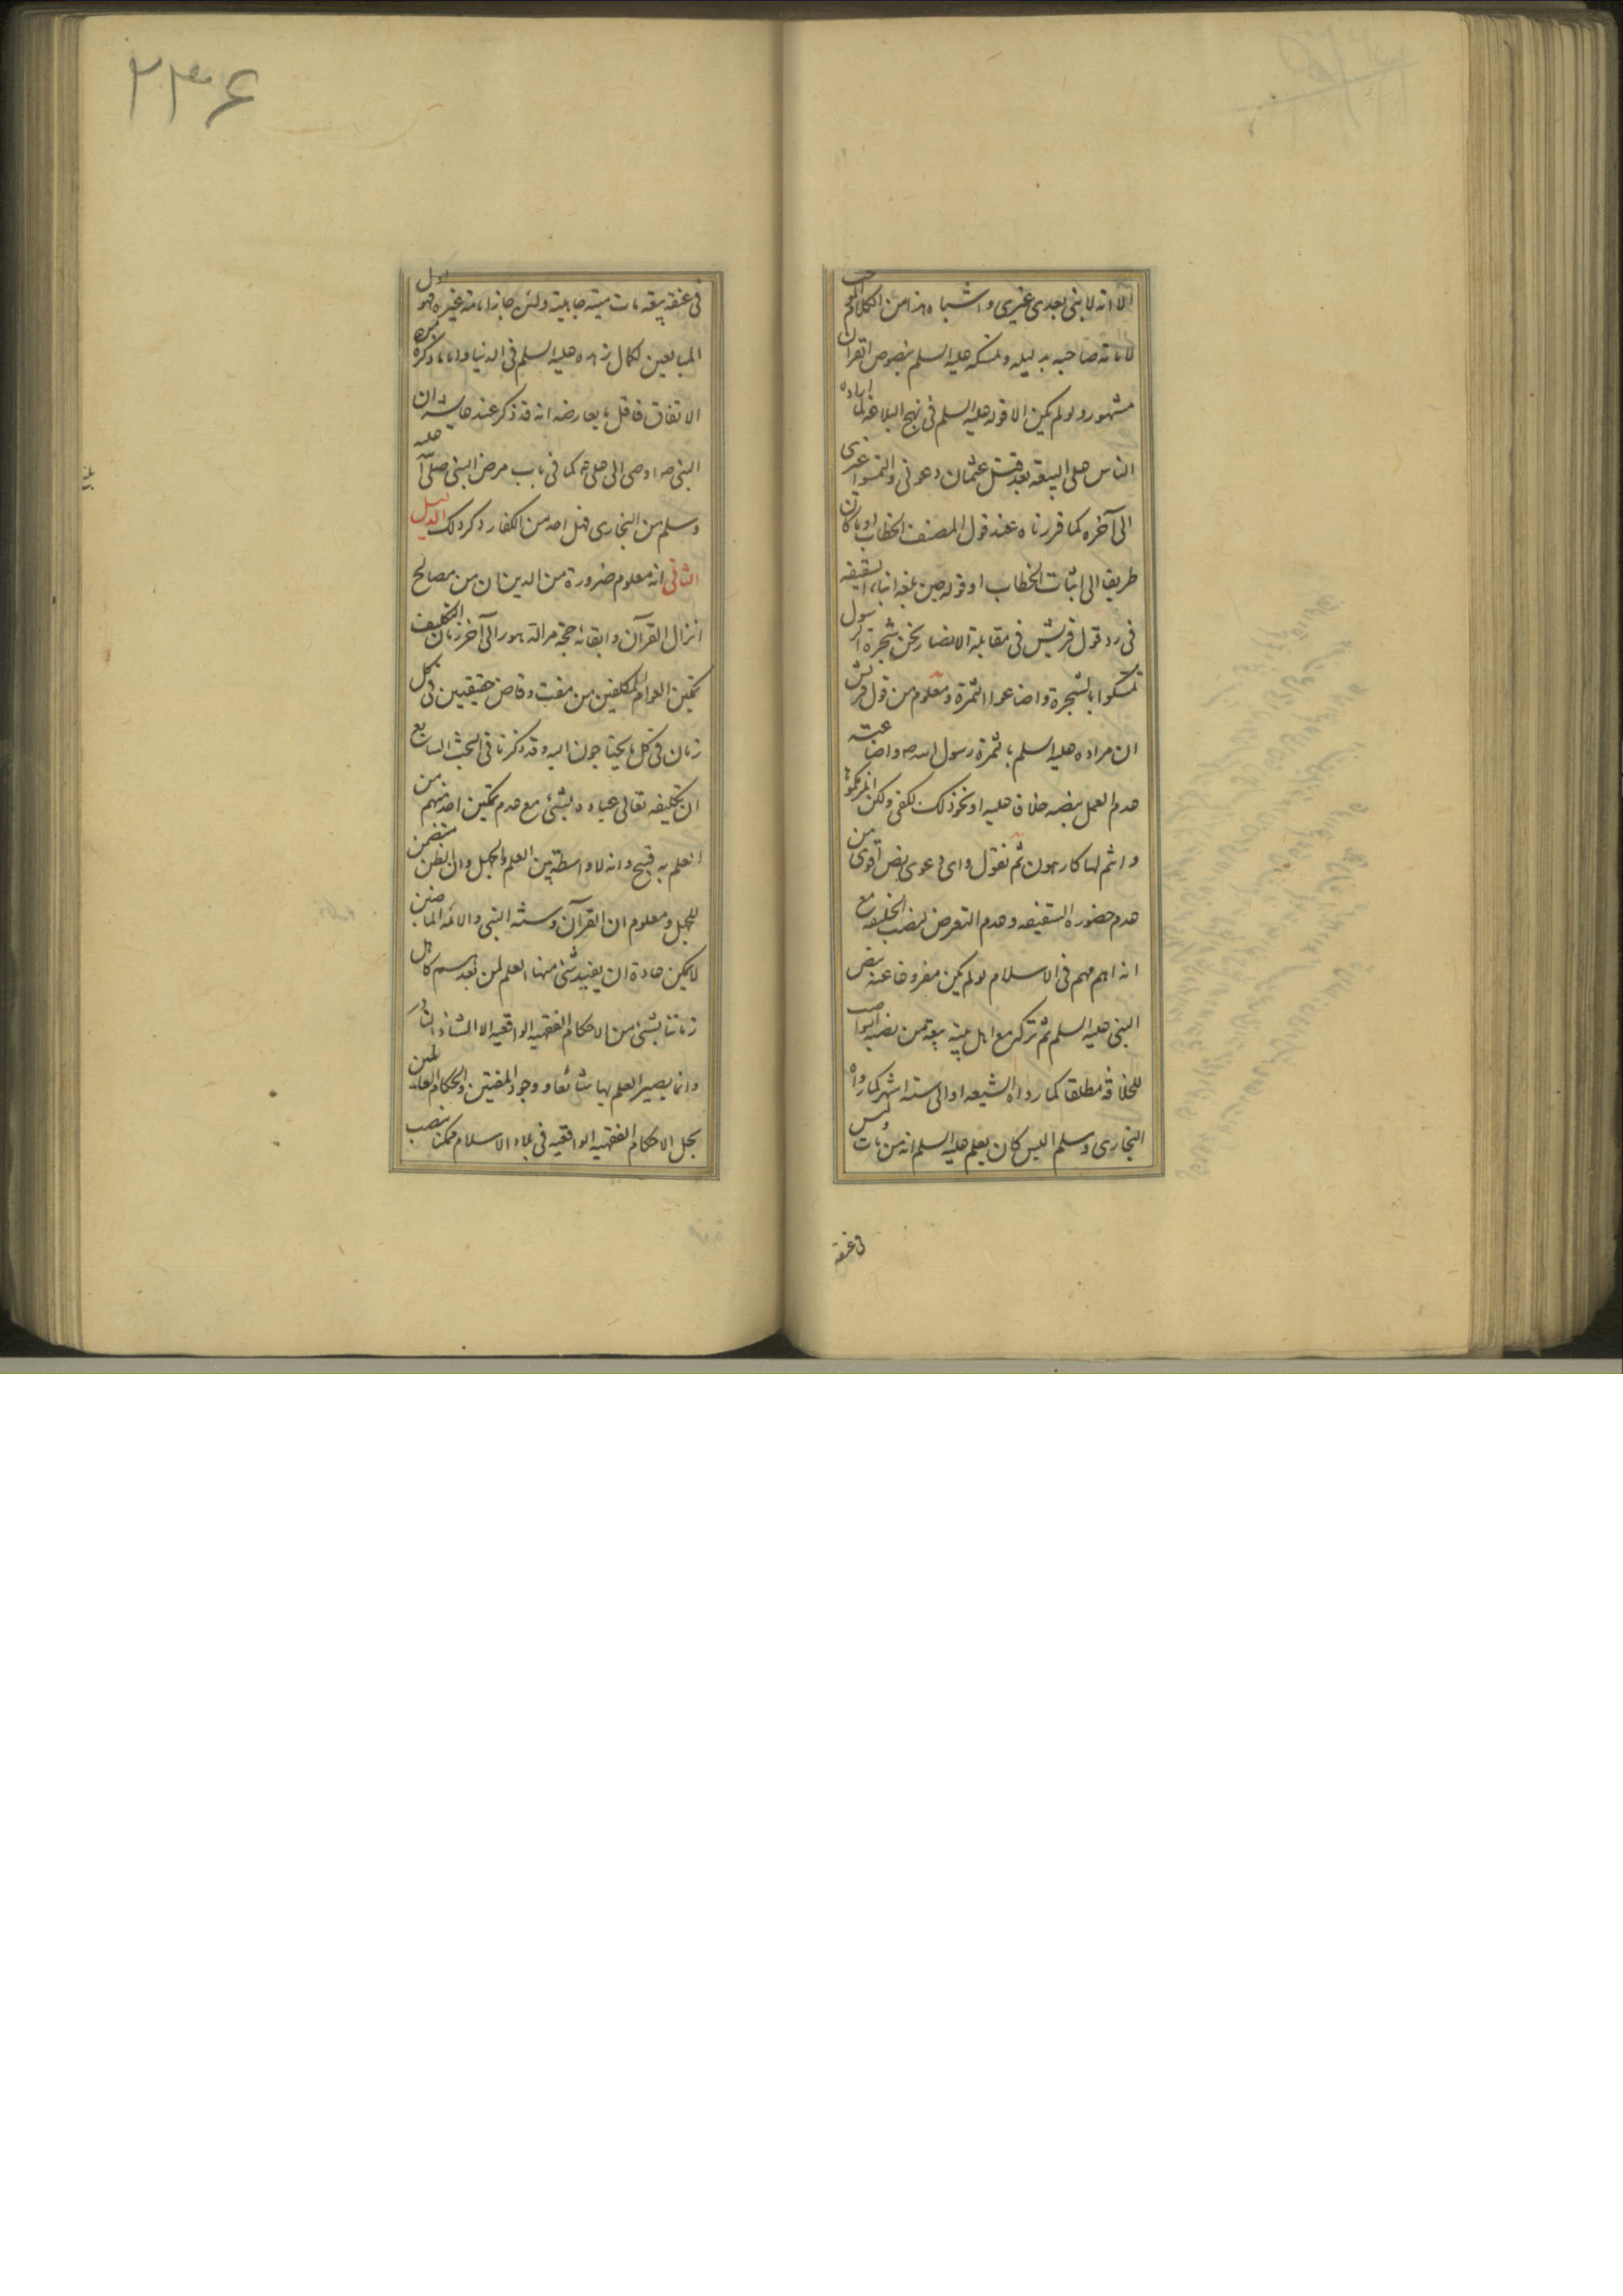 الا انه لا نبی بعدی غیری و اشباه هذا من الکلام الموجب
لامامة صاحبه بدلیله و تمسکه علیه السلم بنصوص القرآن
مشهور و لو لم یکن الا قوله علیه السلم فی نهج البلاغه لما اراده
الناس علی البیعه بعد قتل عثمان دعونی و التمسوا غیری
الی آخره کما قررناه عند قول المصنف الخطاب او ما کان
طریقا الی اثبات الخطاب او قوله حین بلغه انباء السقیفه
فی رد قول قریش فی مقابلة الانصار نحن شجرة الرسول
تمسکوا بالشجرة و اضاعوا الثمرة و معلوم من قول قریش
ان مراده علیه السلم بالثمرة رسول الله ص و اضاعته
عدم العمل بنصه خلافا علیه او نحو ذلک لکفی و لکن انلزمکموها
و انتم لها کارهون ثم نقول و ای دعوی نص اقوی من
عدم حضوره السقیفه و عدم التعرض لنصب الخلیفه مع
انه اهم مهم فی الاسلام لو لم یکن مفروغا عنه بنص
النبی علیه السلم ثم ترکه مع اهل بیته بیعة من نصبه النواصب
للخلافة مطلقا کما رواه الشیعه او الی سته اشهر کما رواه
البخاری و مسلم الیس کان یعلم علیه السلم انه من مات و لیس
فی عنقه
۲۳۶
فی عنقه بیعه مات میته جاهلیة و لئن جاز امامة غیره فهو اول
المبایعین لکمال زهده علیه السلم فی الدنیا و اما ما ذکره من
الاتفاق فاقل ما یعارضه انه قد ذکر عند عایشه ان
النبی ص اوصی الی علی ع کما فی باب مرض النبی صلی الله علیه
و سلم من البخاری فهل احد من الکفار ذکر ذلک الدلیل
الثانی انه معلوم ضرورة من الدین ان من مصالح
انزال القرآن و ابقائه حجة مر الدهور الی آخر زمان التکلیف
تمکین العوام المکلفین من مفت و قاض حقیقیین فی کل
زمان فی کل ما یحتاجون الیه و قد ذکرنا فی البحث السابع
ان تکلیفه تعالی عباده بشیء مع عدم تمکین احد منهم من
العلم به قبیح و انه لا واسطة بین العلم و الجهل و ان الظن متضمن
للجهل و معلوم ان القرآن و سنه النبی و الائمه الماضین
لا یمکن عادة ان یفید شیء منها العلم لمن بعدهم کاهل
زماننا بشیء من الاحکام الفقهیه الواقعیه الا الشاذ النادر
و انما یصیر العلم بها شائعا و وجود المفتین و الحکام العالمین
بجل الاحکام الفقهیه الواقعیه فی بلاد الاسلام ممکنا بنصب